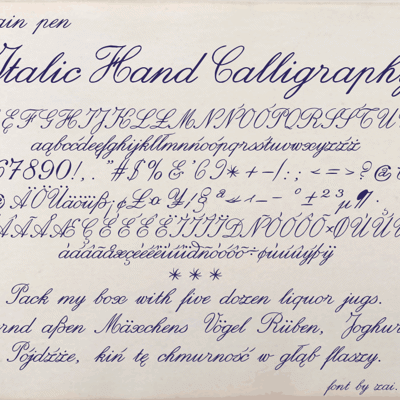 ain pen
Italic Hand Calligraphy
ĘFGHIJKLŁMNŃOÓPQRSŚTU
aąbcćdeęfghijklłmnńoópqrsśtuvwxyzźż
67890!,."#$%&'()*+-/:;<=>?@
ÄÖÜäöüß
ÂÃÄÅÆÇÈÉÊËÌÍÎÏÐÑÒÓÔÕÖ×ØÙÚÛ
* * *
Pack my box with five dozen liquor jugs.
rnd aßen Mäxchens Vögel Rüben, Joghur
Pójdźże, kiń tę chmurność w głąb flaszy.
font by zai.